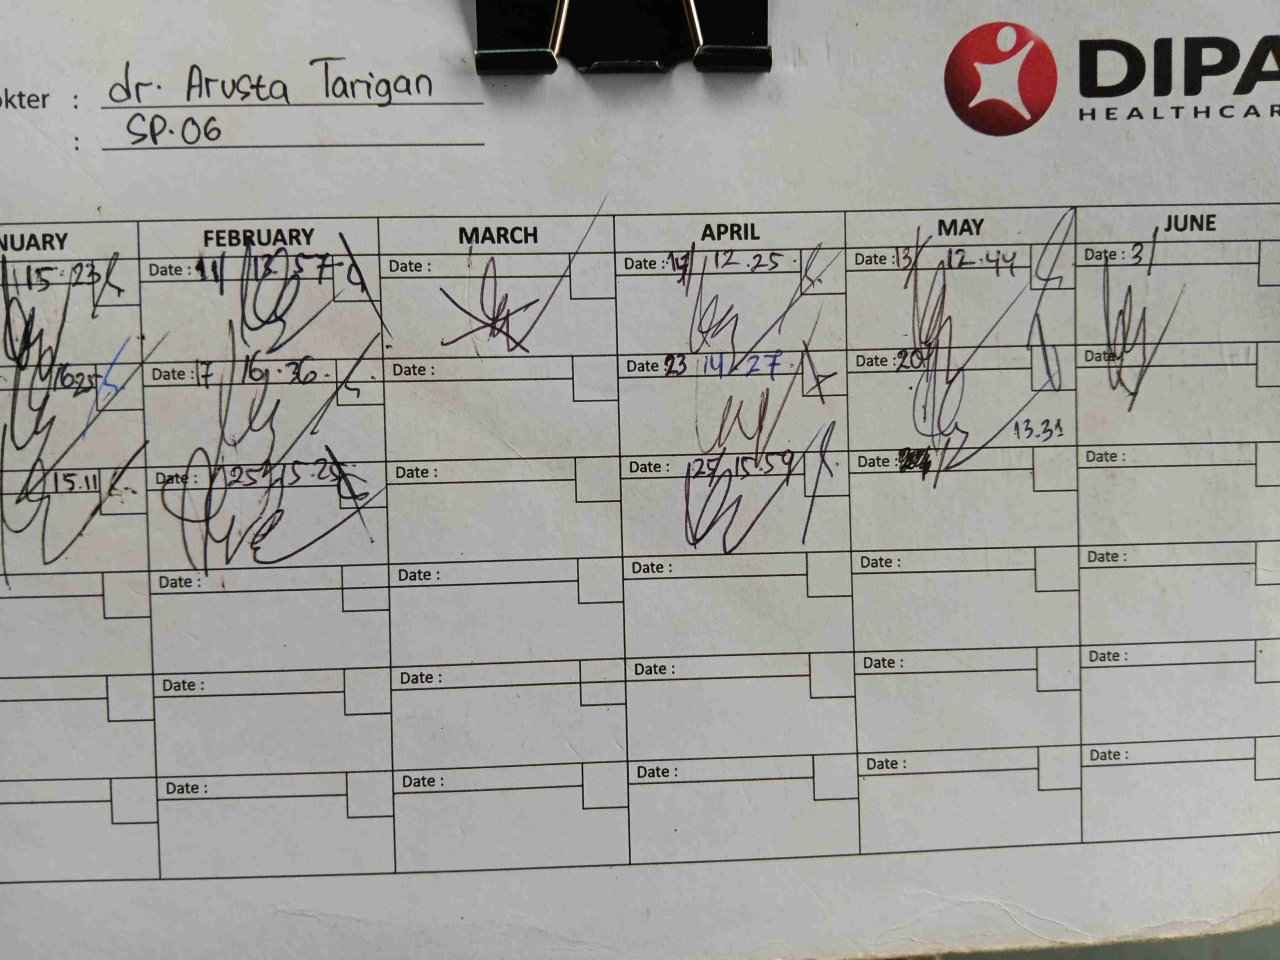 okter : dr. Arusta Tarigan
: SP.06
DIPA
HEALTHCAR
NUARY FEBRUARY MARCH APRIL MAY JUNE
15.23 Date : 11/ 13.57 Date : Date : 12.25 Date : 13/ 12.44 Date : 3/
16.25 Date : 17 16.36 Date : Date 23 14.27 Date : 20 Date
13.31
15.11 Date : 25 15.25 Date : Date : 29/ 15.59 Date : Date :
Date : Date : Date : Date : Date :
Date : Date : Date : Date : Date :
Date : Date : Date : Date : Date :